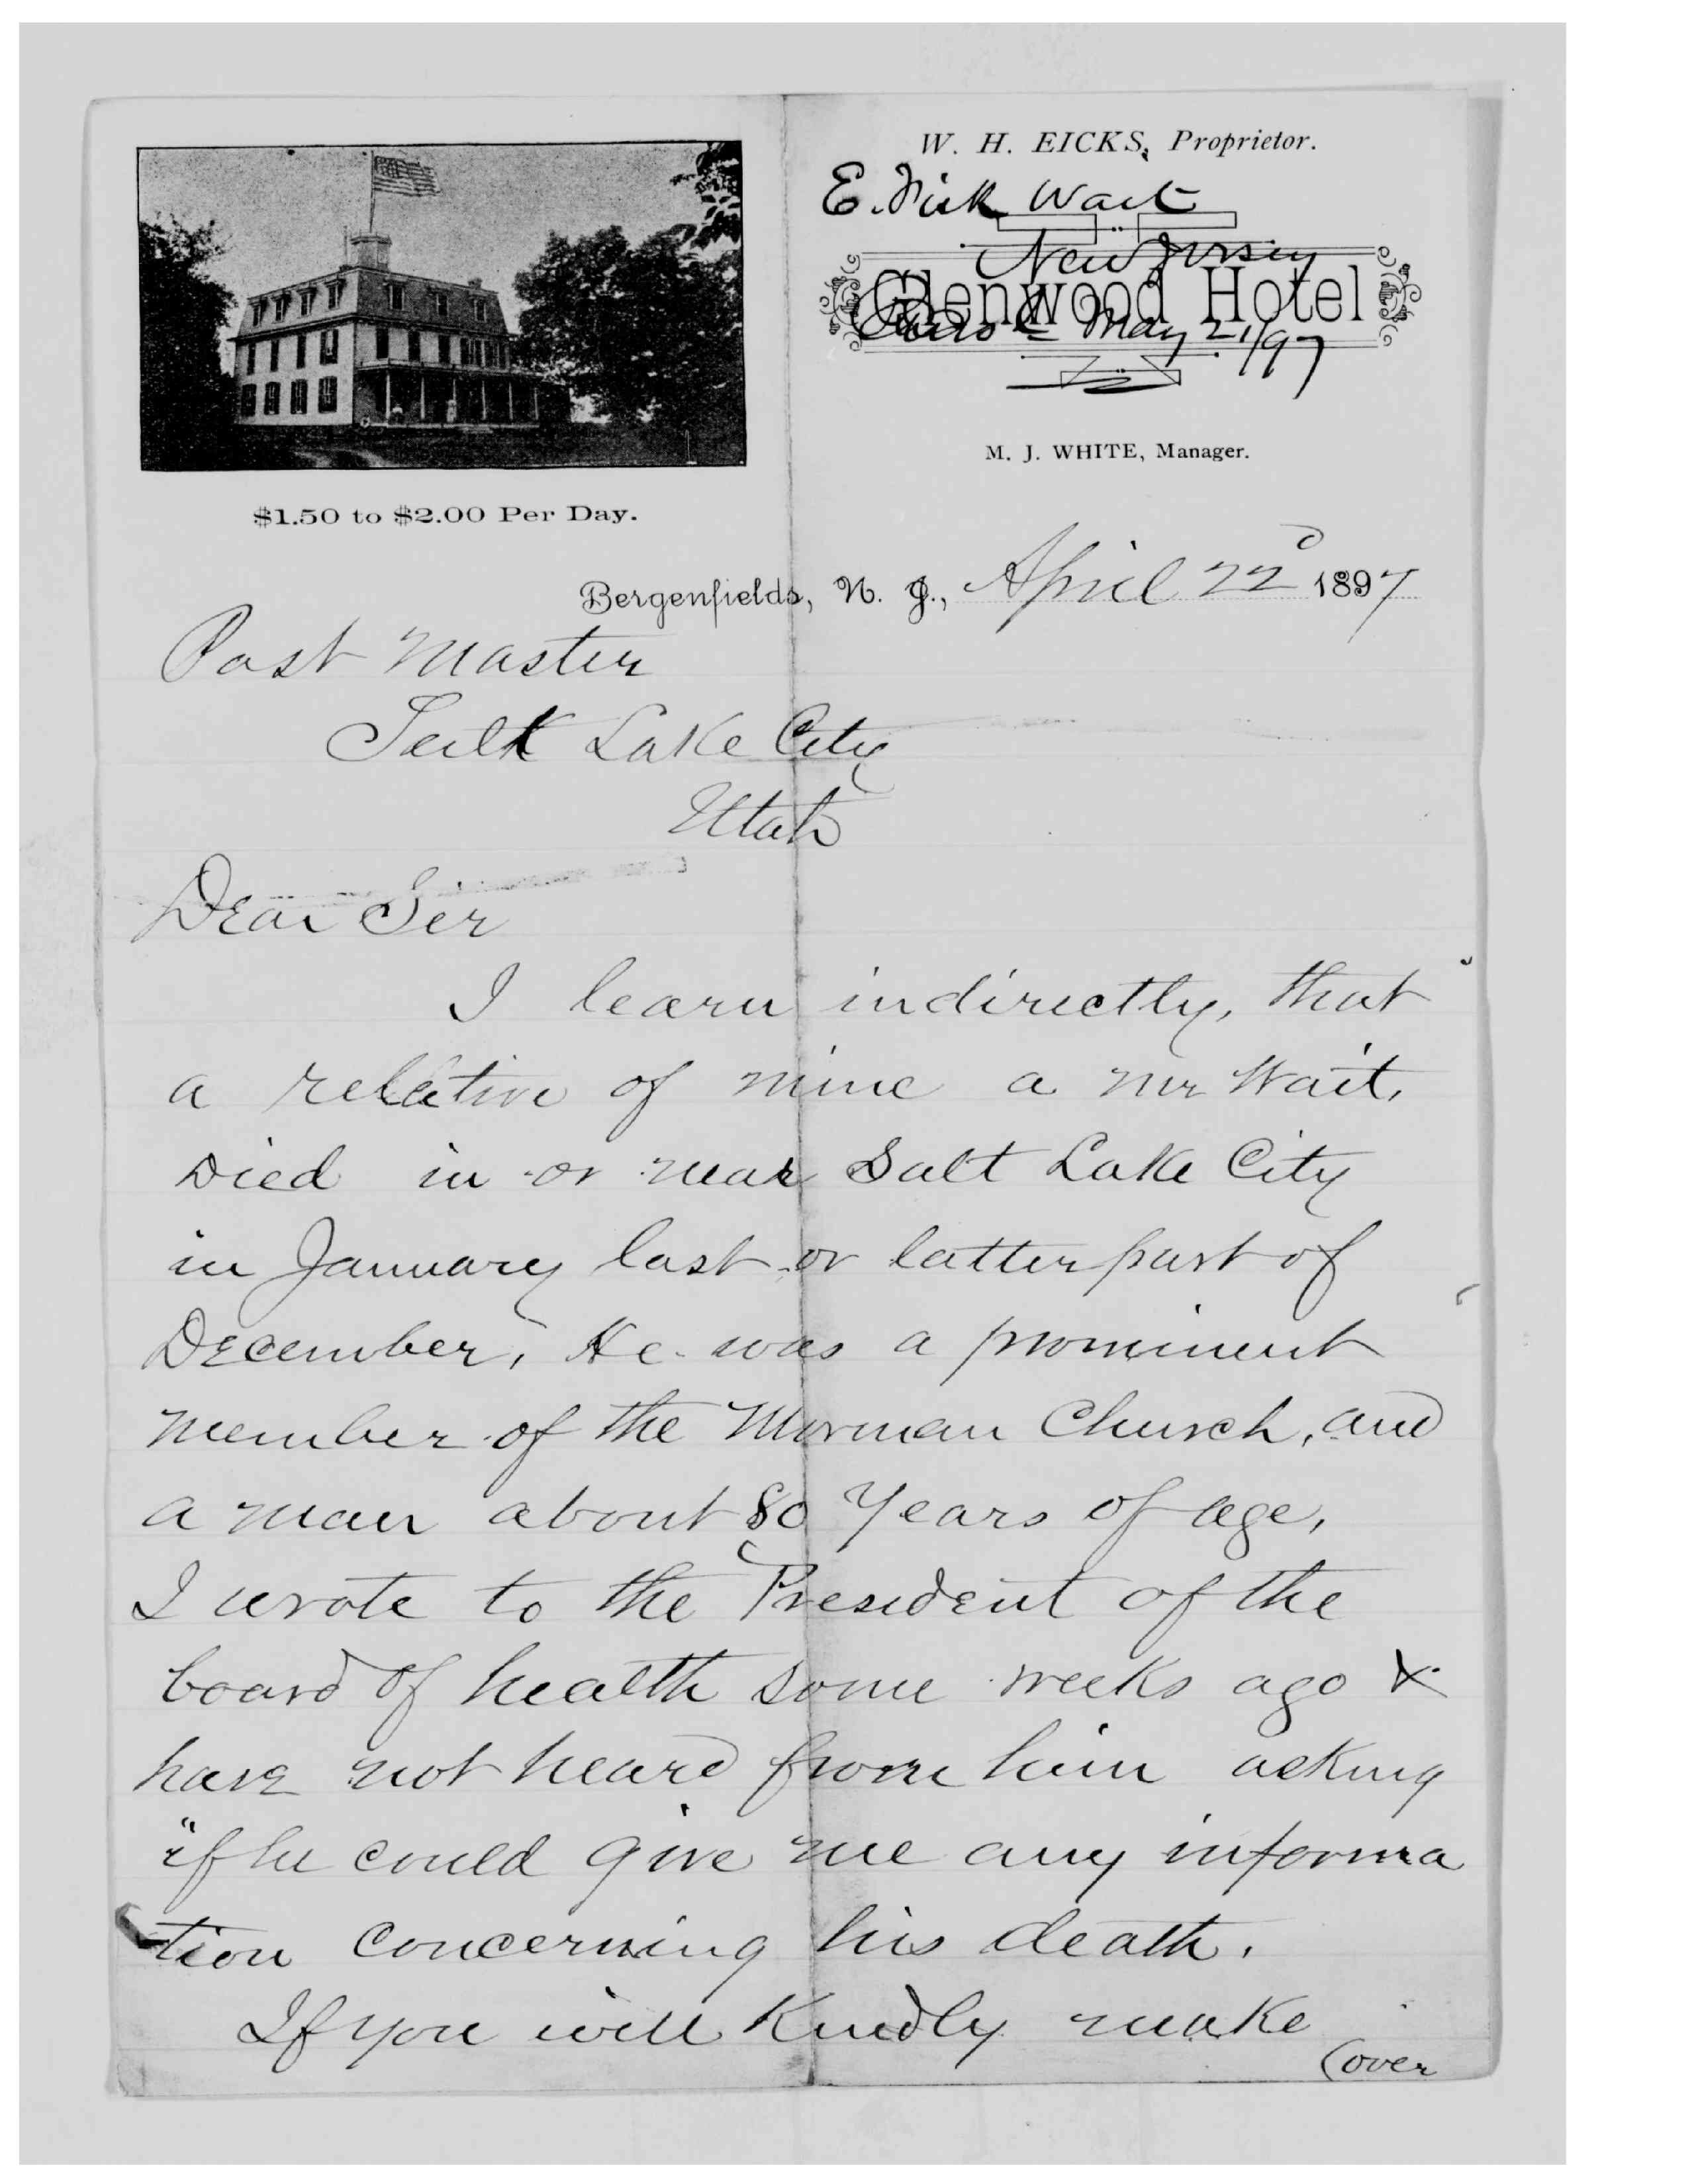 W. H. EICKS, Proprietor.
E. Wait
New Jersey
Glenwood Hotel
May 21/97
M. J. WHITE, Manager.
$1.50 to $2.00 Per Day.
Bergenfields, N. J., April 22d 1897
Post Master
Salt Lake City
Utah
Dear Sir
I learn indirectly, that
a relative of mine a Mr Wait,
Died in or near Salt Lake City
in January last or latter part of
December, He was a prominent
member of the Morman Church, and
a man about 80 Years of age,
I wrote to the President of the
board of health some weeks ago &
have not heard from him asking
if he could give me any informa
tion concerning his death.
If you will Kindly make
(over